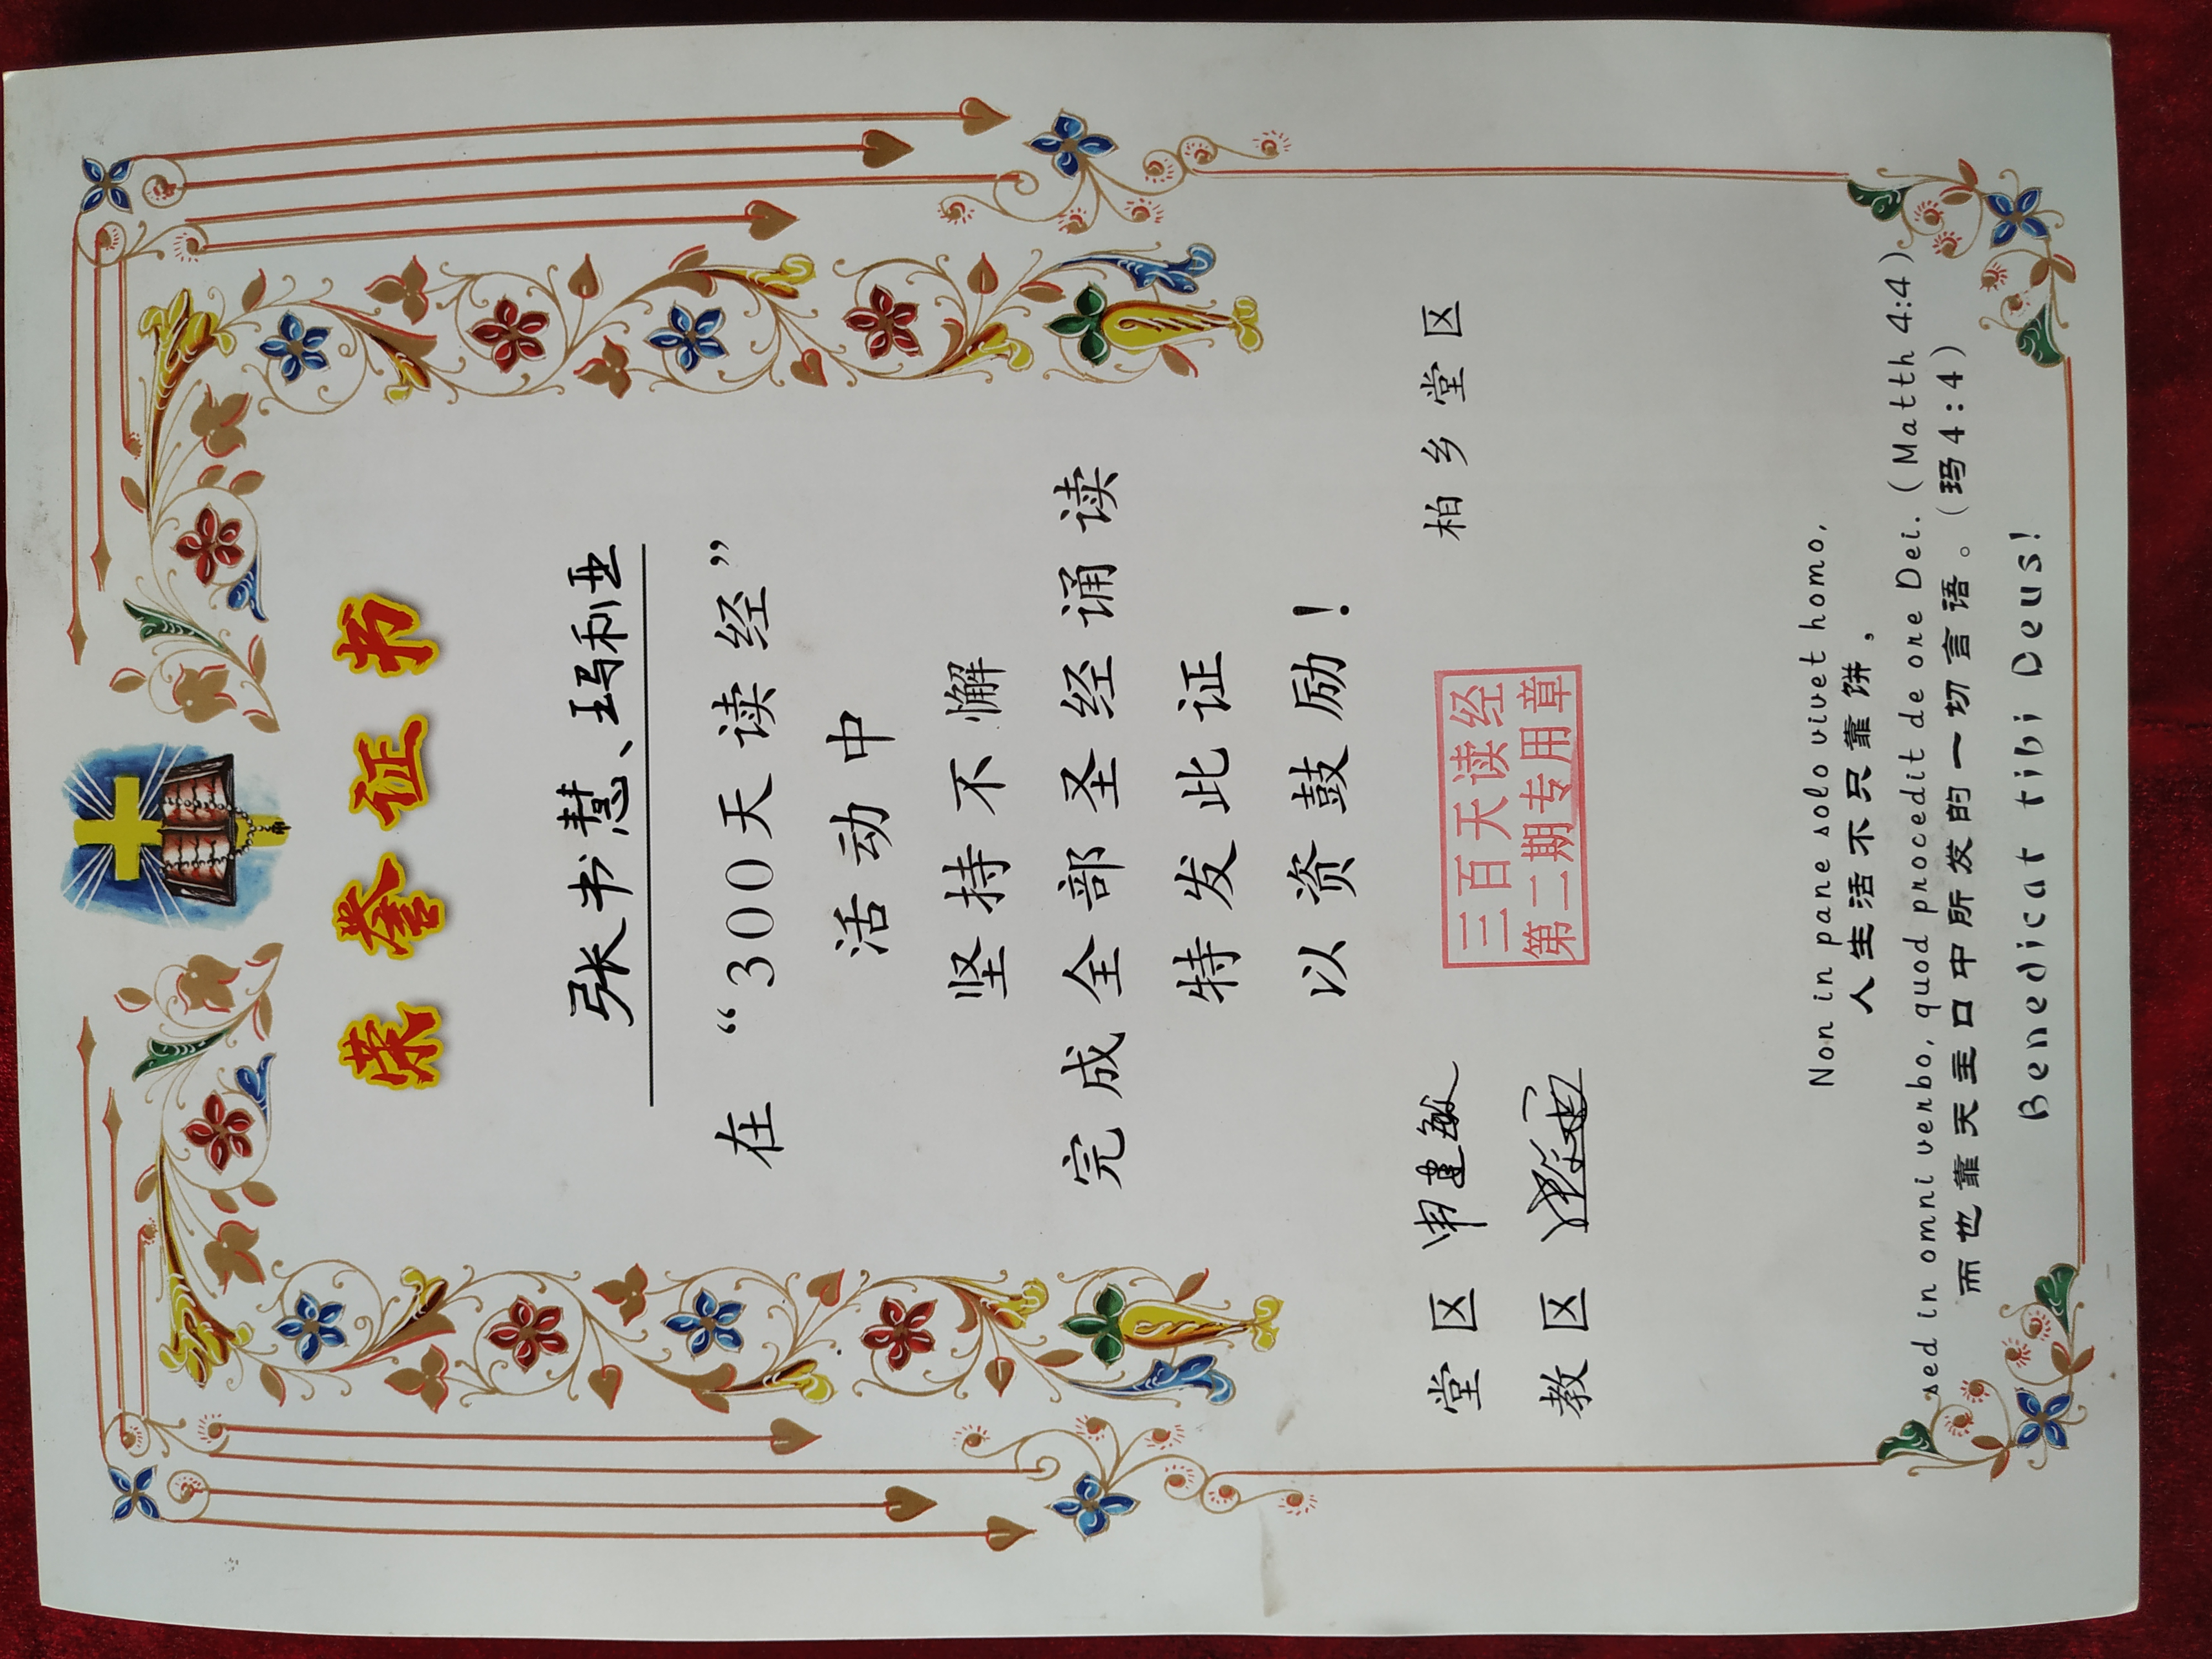 荣誉证书
张书慧、玛利亚
在“300天读经”
活动中
坚持不懈
完成全部圣经诵读
特发此证
以资鼓励！
堂区 申建敏 柏乡堂区
教区
三百天读经
第二期专用章
Non in pane solo vivet homo,
人生活不只靠饼，
sed in omni verbo, quod procedit de ore Dei. (Matth 4:4)
而也靠天主口中所发的一切言语。(玛4:4)
Benedicat tibi Deus!